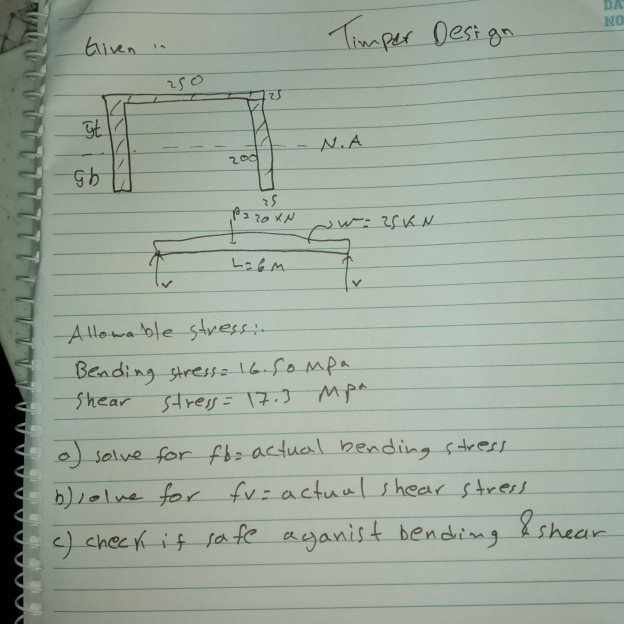 DA
NO
Given :-
Timper Design
250
25
yt
N.A
200
yb
25
P=20 KN
w=25KN
L=6M
v
v
Allowable stress:.
Bending stress=16.50 MPa
Shear stress=17.3 MPa
a) solve for fb=actual bending stress
b) solve for fv=actual shear stress
c) check if safe aganist bending & shear